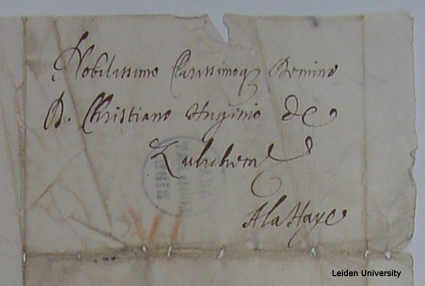 Nobilissimo Clarissimoq Domino
D. Christiano Hugenio de
Zulichem
A la Haye
Leiden University